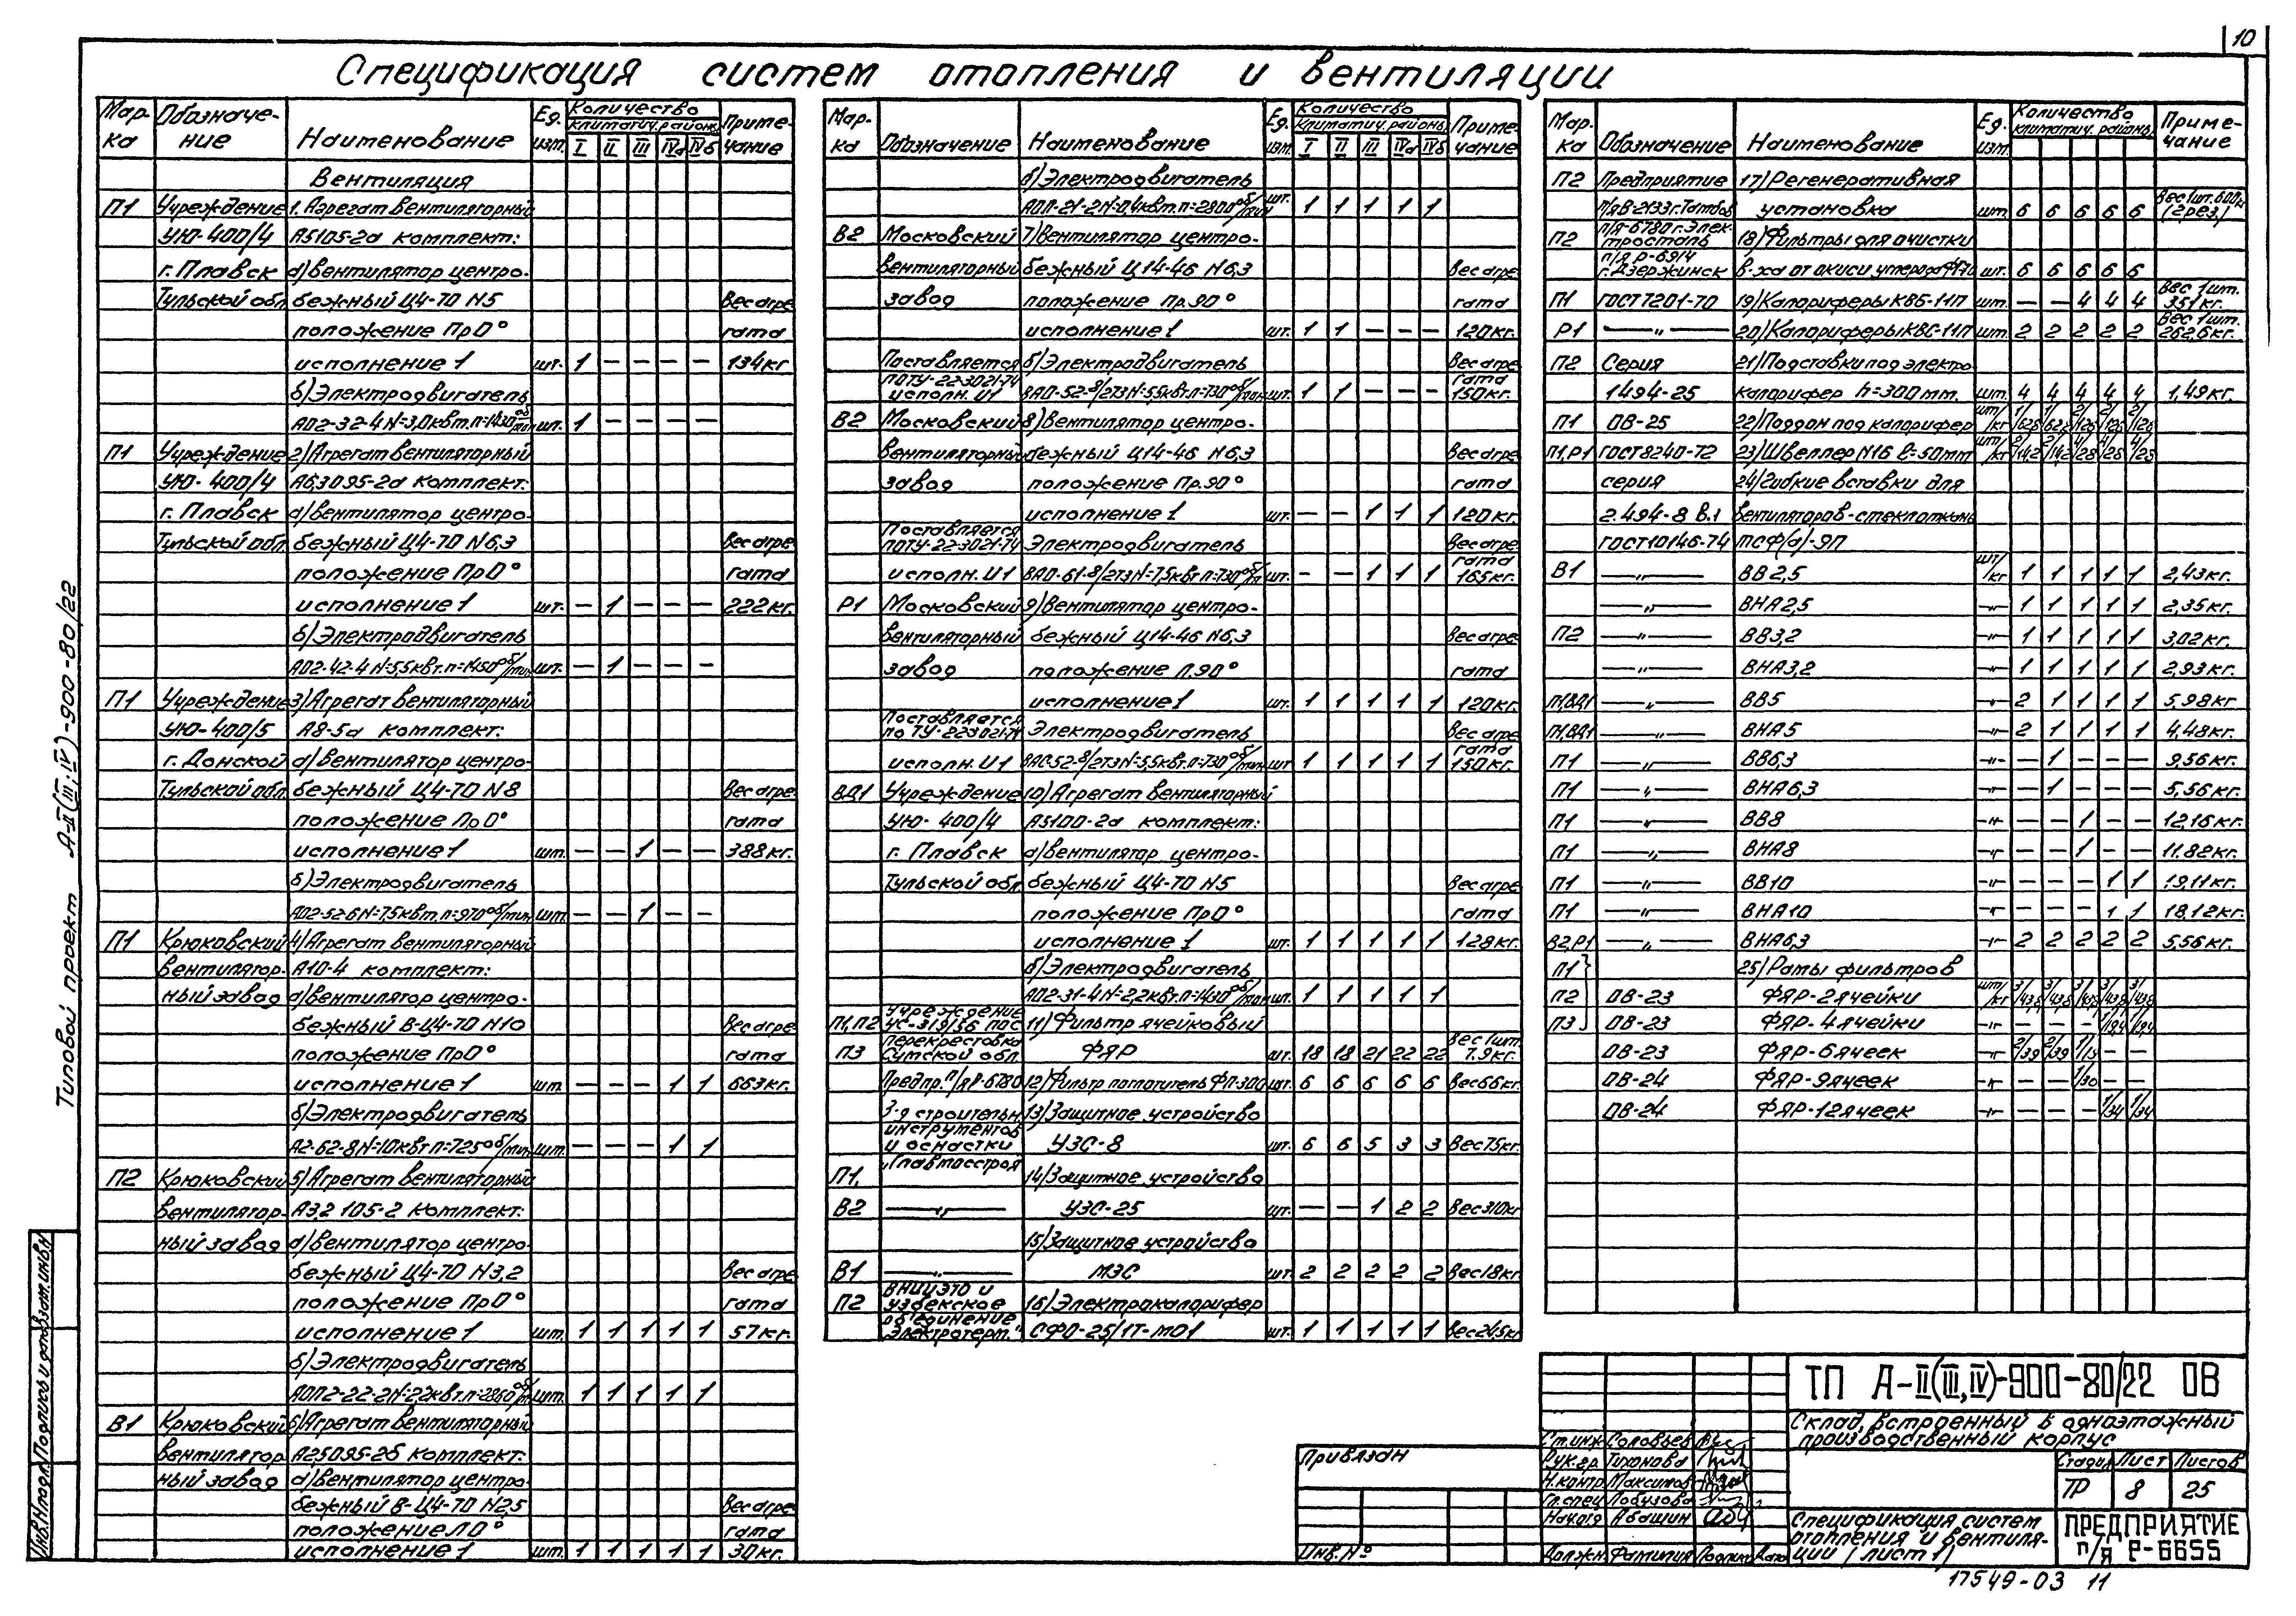 10
Спецификация систем отопления и вентиляции
Мар-ка Обозначе-ние Наименование Ед. изм. Количество климатич. районы I II III IVа IVб Приме-чание
Вентиляция
П1 Учреждение 1. Агрегат вентиляторный
УЮ-400/4 А5105-2а комплект:
г. Плавск а) вентилятор центро-
Тульской обл. бежный Ц4-70 N5 Вес агре
положение Пр0° гата
исполнение 1 шт. 1 — — — — 134кг
б) Электродвигатель
АО2-32-4 N=3,0квт. n=1430 об/мин шт. 1 — — — —
П1 Учреждение 2) Агрегат вентиляторный
УЮ-400/4 А6,3095-2а комплект:
г. Плавск а) вентилятор центро-
Тульской обл бежный Ц4-70 N6,3 Вес агре
положение Пр0° гата
исполнение 1 шт. — 1 — — — 222кг.
б) Электродвигатель
АО2-42-4 N=5,5квт. n=1450 об/мин шт. — 1 — — —
П1 Учреждение 3) Агрегат вентиляторный
УЮ-400/5 А8-5а комплект:
г. Донской а) вентилятор центро-
Тульской обл. бежный Ц4-70 N8 Вес агре
положение Пр0° гата
исполнение 1 шт. — — 1 — — 388кг.
б) Электродвигатель
АО2-52-6 N=7,5квт. n=970 об/мин шт. — — 1 — —
П1 Крюковский 4) Агрегат вентиляторный
вентилятор- А10-4 комплект:
ный завод а) вентилятор центро-
бежный В-Ц4-70 N10 Вес агре
положение Пр0° гата
исполнение 1 шт. — — — 1 1 663кг.
б) Электродвигатель
А2-62-8 N=10квт n=725 об/мин. шт. — — — 1 1
П2 Крюковский 5) Агрегат вентиляторный
вентилятор- А3,2 105-2 комплект:
ный завод а) вентилятор центро-
бежный Ц4-70 N3,2 Вес агре
положение Пр0° гата
исполнение 1 шт. 1 1 1 1 1 57кг.
б) Электродвигатель
АОЛ2-22-2 N=2,2квт. n=2860 шт. 1 1 1 1 1
В1 Крюковский 6) Агрегат вентиляторный
вентилятор А2,5095-2б комплект:
ный завод а) вентилятор центро-
бежный В-Ц4-70 N2,5 Вес агре
положение Л0° гата
исполнение 1 шт. 1 1 1 1 1 30кг.
Мар-ка Обозначение Наименование Ед. изм. Количество климатич. районы I II III IVа IVб Приме-чание
б) Электродвигатель
АОЛ-21-2 N=0,4квт. n=2800 об/мин шт. 1 1 1 1 1
В2 Московский 7) Вентилятор центро-
вентиляторный бежный Ц14-46 N6,3 Вес агре
завод положение Пр.90° гата
исполнение 1 шт. 1 1 — — — 120кг.
Поставляется б) Электродвигатель Вес агре
ПОТУ-22-3021-74 исполн. U1 ВАО-52-8/2Т3 N=5,5квт. n=730 об/мин шт. 1 1 — — — гата 150кг.
В2 Московский 8) Вентилятор центро-
вентиляторный бежный Ц14-46 N6,3 Вес агре
завод положение Пр.90° гата
исполнение 1 шт. — — 1 1 1 120кг.
Поставляется ПОТУ-22-3021-74 Электродвигатель Вес агре
исполн. U1 ВАО-61-8/2Т3 N=7,5квт n=730 об/ шт. — — 1 1 1 гата 165кг.
Р1 Московский 9) Вентилятор центро-
вентиляторный бежный Ц14-46 N6,3 Вес агре
завод положение Л.90° гата
исполнение 1 шт. 1 1 1 1 1 120кг.
Поставляется по ТУ-22-3021-74 Электродвигатель Вес агре
исполн. U1 ВАО52-8/2Т3 N=5,5квт. n=730 об/мин шт 1 1 1 1 1 гата 150кг.
ВД1 Учреждение 10) Агрегат вентиляторный
УЮ-400/4 А5100-2а комплект:
г. Плавск а) вентилятор центро-
Тульской обл. бежный Ц4-70 N5 Вес агре
положение Пр0° гата
исполнение 1 шт. 1 1 1 1 1 128кг.
б) Электродвигатель
АО2-31-4 N=2,2квт. n=1430 об/мин шт. 1 1 1 1 1
П1,П2 Учреждение УС-319/36 пос 11) Фильтр ячейковый
П3 Перекрестовка Сумской обл. ФЯР шт. 18 18 21 22 22 Вес 1шт. 7.9кг.
Предпр. П/Я Р-6780 12) Фильтр поглотитель ФП-300 шт. 6 6 6 6 6 Вес 66кг.
З-д строительн 13) Защитное устройство
инструментов и оснастки УЗС-8 шт. 6 6 5 3 3 Вес 75кг.
П1, „Главмосстрой 14) Защитное устройство
В2 —„— УЗС-25 шт. — — 1 2 2 Вес 310кг
15) Защитное устройство
В1 —„— МЗС шт. 2 2 2 2 2 Вес 18кг.
П2 ВНИИЭТО и узбекское 16) Электрокалорифер
объединение „Электротерм." СФО-25/1Т-М01 шт. 1 1 1 1 1 Вес 24,5кг
Мар-ка Обозначение Наименование Ед. изм. Количество климатич. районы Приме-чание
П2 Предприятие 17) Регенеративная
П/Я В-2133 г. Тамбов установка шт. 6 6 6 6 6 Вес 1шт. 600кг (2рез.)
П2 П/Я-6780 г. Элек-тросталь 18) Фильтры для очистки
П/Я Р-6914 г. Дзержинск в-ха от окиси углерода шт. 6 6 6 6 6
П1 ГОСТ 7201-70 19) Калориферы КВБ-11П шт. — — 4 4 4 Вес 1шт. 351кг.
Р1 —„— 20) Калориферы КВС-11П шт 2 2 2 2 2 Вес 1шт. 262,6кг.
П2 Серия 21) Подставки под электро-
1494-25 калорифер h=300мм. шт. 4 4 4 4 4 1,49кг.
П1 ОВ-25 22) Поддон под калорифер шт/кг
П1,Р1 ГОСТ 8240-72 23) Швеллер N16 ℓ=50мм шт/кг 2/14,2 2/14,2 4/28 4/28 4/28
серия 24) Гибкие вставки для
2.494-8 В.1 вентиляторов-стеклоткань
ГОСТ 10146-74 ТСФ(а)-9П
В1 —„— ВВ2,5 шт/кг 1 1 1 1 1 2,43кг.
—„— ВНА2,5 —"— 1 1 1 1 1 2,35кг.
П2 —„— ВВ3,2 —"— 1 1 1 1 1 3,02кг.
—„— ВНА3,2 —"— 1 1 1 1 1 2,93кг.
П1,ВД1 —„— ВВ5 —"— 2 1 1 1 1 5,98кг
П1,ВД1 —„— ВНА5 —"— 2 1 1 1 1 4,48кг.
П1 —„— ВВ6,3 —"— — 1 — — — 9,56кг.
П1 —„— ВНА6,3 — 1 — — — 5,56кг.
П1 —„— ВВ8 —"— — — 1 — — 12,16кг.
П1 —„— ВНА8 —"— — — 1 — — 11.82кг.
П1 —„— ВВ10 —"— — — — 1 1 19,11кг.
П1 —„— ВНА10 —"— — — — 1 1 18,12кг.
В2,Р1 —„— ВНА6,3 —"— 2 2 2 2 2 5,56кг.
П1 25) Рамы фильтров
П2 ОВ-23 ФЯР-2ячейки шт/кг 3/43,8 3/43,8 3/43,8 3/43,8 3/43,8
П3 ОВ-23 ФЯР-4ячейки —"— — — — 1/19,4 1/19,4
ОВ-23 ФЯР-6ячеек —"— 2/39 2/39 — —
ОВ-24 ФЯР-9ячеек —"— — — 1/30 — —
ОВ-24 ФЯР-12ячеек —"— — — — 1/34 1/34
Типовой проект А-II(III;IV)-900-80/22
Инв.N подл. Подпись и дата Взам.инв.N
Привязан
Инв. N°
Ст.инж. Соловьев
Рук.гр. Тихонова
Н.контр. Максимов
Гл.спец. Лобузова
Нач.отд Абашин
Должн. Фамилия Подпись Дата
ТП А-II(III,IV)-900-80/22 ОВ
Склад, встроенный в одноэтажный
производственный корпус
Стадия Лист Листов
ТР 8 25
Спецификация систем
отопления и вентиля-
ции (лист 1)
ПРЕДПРИЯТИЕ
п/я Р-6655
17549-03 11